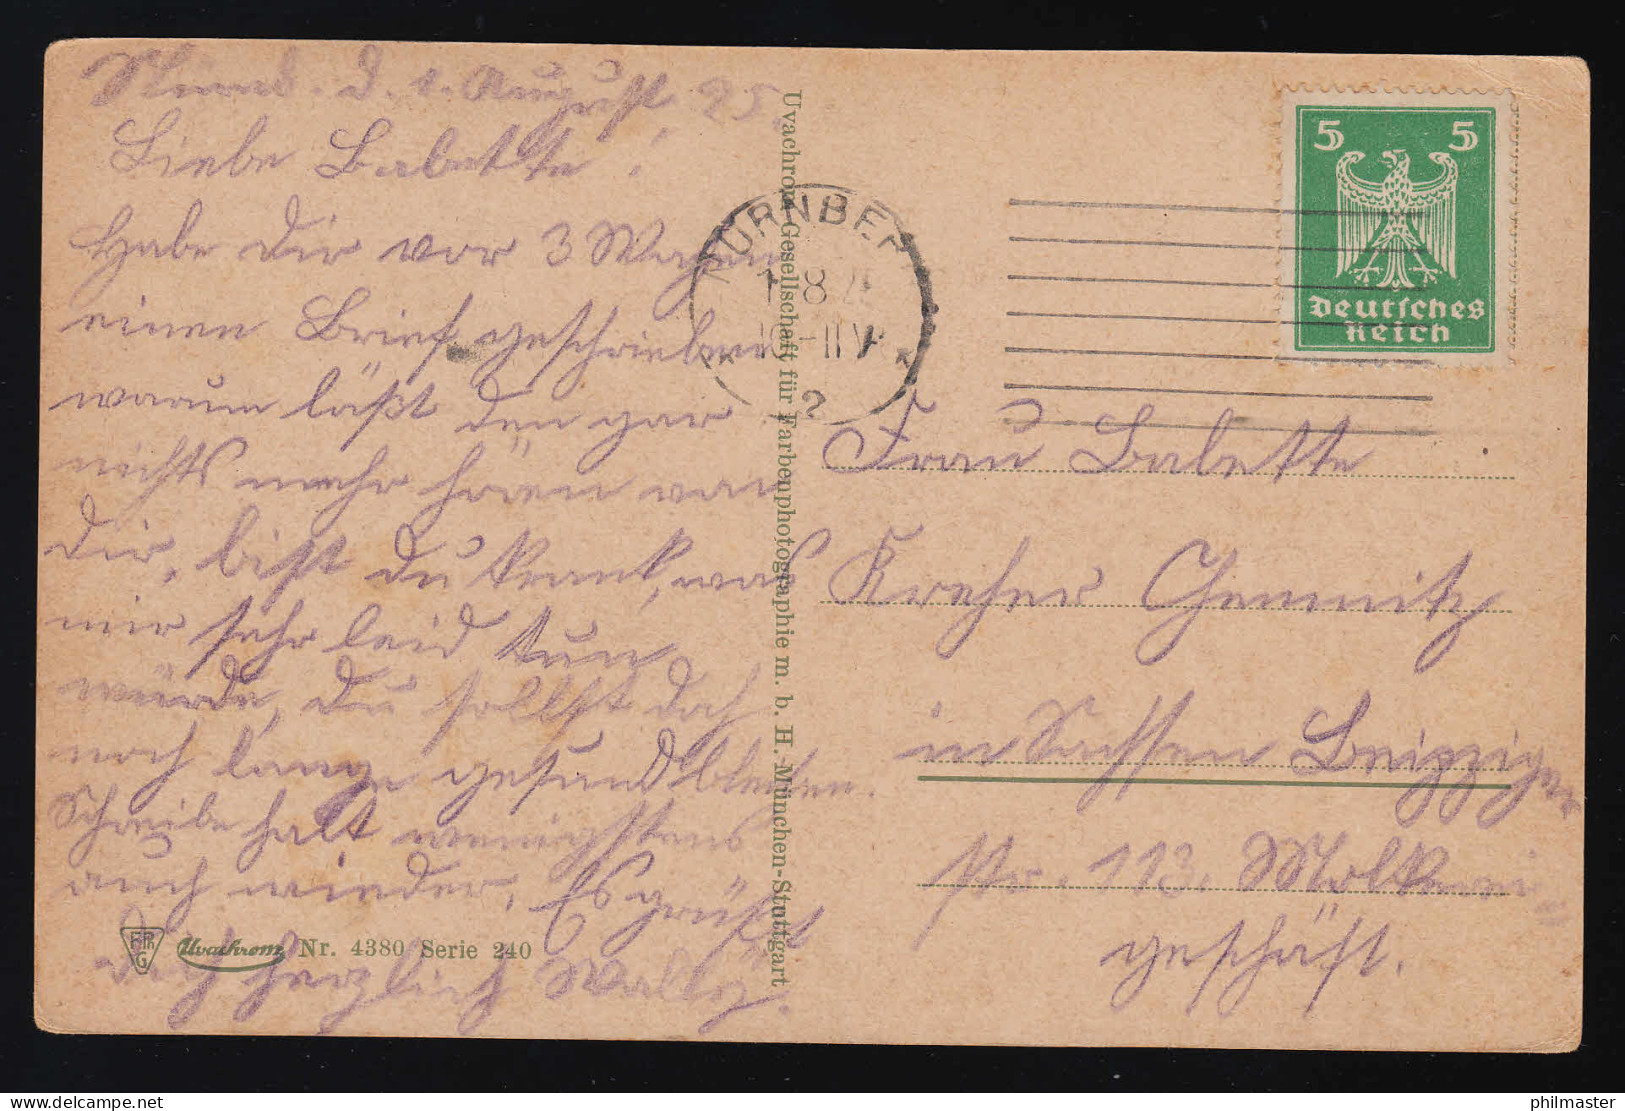 d. 1. August 25.
Liebe Babette!
Habe dir vor 3 Wagen
einen Brief geschrieben
warum läßt den gar
nichts mehr hören von
dir, bist du krank, was
mir sehr leid tun
würde, du sollst doch
noch lange gesund bleiben.
Schreibe halt wenigstens
auch wieder. Es grüßt
dich herzlich Wally.
Uvachrom Nr. 4380 Serie 240
Uvachrom Gesellschaft für Farbenphotographie m. b. H. München-Stuttgart
NÜRNBER
1 8 25
10-11 V
2
5 5
Deutsches
Reich
Frau Babette
Kreher Chemnitz
in Sachsen Leipziger
Str. 113. Molkerei
geschäft.
philmaster